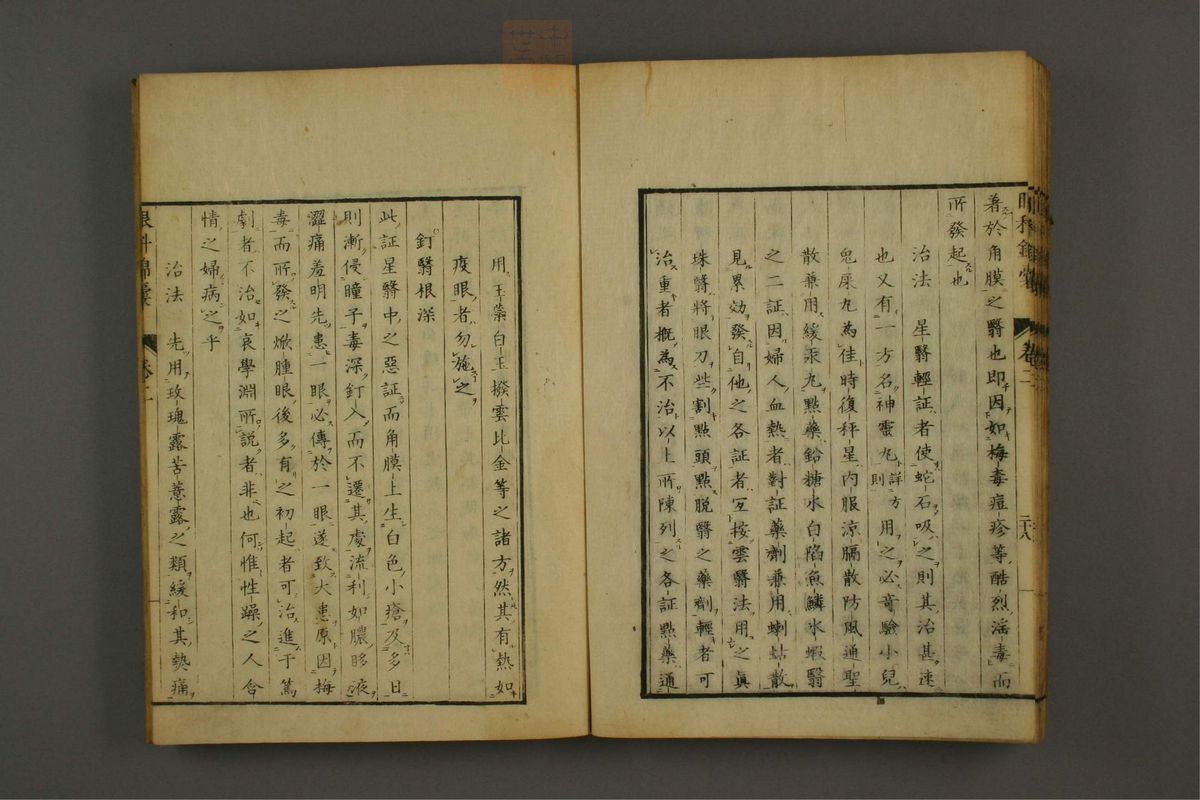 着於角膜之翳也即因如梅毒痘疹等酷烈淫毒而
所發起也
治法 星翳輕証者使蛇石吸之則其治甚速
也又有一方名神靈丸詳方則用之必奇驗小兒
兒屎丸為佳時復秤星內服涼膈散防風通聖
散兼用緩汞丸點藥鉛糖水白陷魚鱗水蝦翳
之二証因婦人血熱者對証藥劑兼用蝲蛄散
見累効發自他之各証者互按雲翳法用之眞
珠翳將眼刀些割點頭點脫翳之藥劑輕者可
治重者概為不治以上所陳列之各証點藥通
卷二
二十八
用玉藥白玉撥雲比金等之諸方然其有熱如
疫眼者勿施之
釘翳根深
此証星翳中之惡証而角膜上生白色小瘡及多日
則漸侵瞳子毒深釘入而不遷其處流利如膿眵液
澀痛羞明先患一眼必傳於一眼遂致大患原因梅
毒而所發之焮腫眼後多有之初起者可治進于篤
劇者不治如哀學淵所說者非也何惟性躁之人含
情之婦病之乎
治法 先用玫瑰露苦薏露之類緩和其熱痛
眼科錦囊
卷二